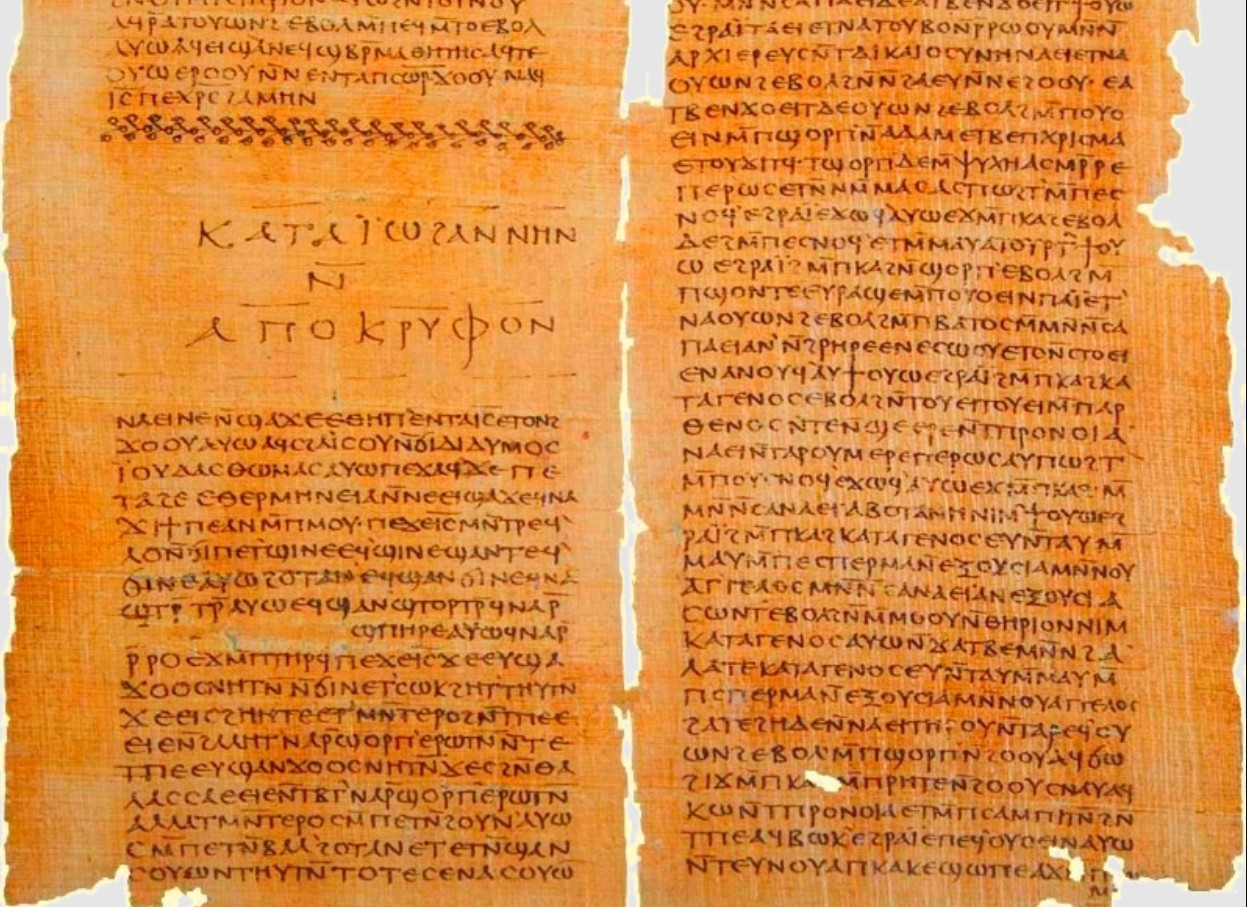 ⲁϥⲣⲁⲧⲟⲩⲱⲛϩ ⲉⲃⲟⲗ ⲙ̄ⲡⲉϥⲙ̄ⲧⲟ ⲉⲃⲟⲗ
ⲁⲩⲱ ⲁϥⲉⲓ ϣⲁⲛⲉϥϣⲃⲣⲙⲁⲑⲏⲧⲏⲥ ⲁϥⲧⲉ
ⲟⲩⲱ ⲉⲣⲟⲟⲩ ⲛ̄ⲛⲉⲛⲧⲁⲡⲥⲱⲣ ϫⲟⲟⲩ ⲛⲁϥ
ⲓ̄ⲥ̄ ⲡⲉⲭⲣ̄ⲥ̄ ϩⲁⲙⲏⲛ
ⲕⲁⲧⲁ ⲓ̈ⲱϩⲁⲛⲛⲏⲛ
ⲛ̄
ⲁⲡⲟⲕⲣⲩⲫⲟⲛ
ⲛⲁⲉⲓ ⲛⲉ ⲛ̄ϣⲁϫⲉ ⲉⲑⲏⲡ ⲉⲛⲧⲁⲓ̄ⲥ̄ ⲉⲧⲟⲛϩ
ϫⲟⲟⲩ ⲁⲩⲱ ⲁϥⲥϩⲁⲓ̈ⲥⲟⲩ ⲛ̄ϭⲓ ⲇⲓⲇⲩⲙⲟⲥ
ⲓ̈ⲟⲩⲇⲁⲥ ⲑⲱⲙⲁⲥ ⲁⲩⲱ ⲡⲉϫⲁϥ ϫⲉ ⲡⲉ
ⲧⲁϩⲉ ⲉⲑⲉⲣⲙⲏⲛⲉⲓⲁ ⲛ̄ⲛⲉⲉⲓϣⲁϫⲉ ϥⲛⲁ
ϫⲓ ϯⲡⲉ ⲁⲛ ⲙ̄ⲡⲙⲟⲩ· ⲡⲉϫⲉ ⲓ̄ⲥ̄ ⲙⲛ̄ⲧⲣⲉϥ
ⲗⲟ ⲛ̄ϭⲓ ⲡⲉⲧϣⲓⲛⲉ ⲉϥϣⲓⲛⲉ ϣⲁⲛⲧⲉϥ
ϭⲓⲛⲉ ⲁⲩⲱ ϩⲟⲧⲁⲛ ⲉϥϣⲁⲛϭⲓⲛⲉ ϥⲛⲁ
ϣⲧⲣ̄ⲧⲣ̄ ⲁⲩⲱ ⲉϥϣⲁⲛϣⲧⲟⲣⲧⲣ̄ ϥⲛⲁⲣ̄
ϣⲡⲏⲣⲉ ⲁⲩⲱ ϥⲛⲁⲣ̄
ⲣ̄ⲣⲟ ⲉϫⲙ̄ ⲡⲧⲏⲣϥ ⲡⲉϫⲉ ⲓ̄ⲥ̄ ϫⲉ ⲉⲩϣⲁ
ϫⲟⲟⲥ ⲛⲏⲧⲛ̄ ⲛ̄ϭⲓ ⲛⲉⲧⲥⲱⲕ ϩⲏⲧ ⲧⲏⲩⲧⲛ̄
ϫⲉ ⲉⲓⲥϩⲏⲏⲧⲉ ⲉⲧⲙⲛ̄ⲧⲉⲣⲟ ϩⲛ̄ ⲧⲡⲉ ⲉ
ⲉⲓⲉ ⲛ̄ϩⲁⲗⲏⲧ ⲛⲁⲣ̄ ϣⲟⲣⲡ ⲉⲣⲱⲧⲛ̄ ⲛ̄ⲧⲉ
ⲧⲡⲉ ⲉⲩϣⲁⲛϫⲟⲟⲥ ⲛⲏⲧⲛ̄ ϫⲉ ⲥϩⲛ̄ ⲑⲁ
ⲗⲁⲥⲥⲁ ⲉⲉⲓⲉ ⲛ̄ⲧⲃ̄ⲧ ⲛⲁⲣ̄ ϣⲟⲣⲡ ⲉⲣⲱⲧⲛ̄
ⲁⲗⲗⲁ ⲧⲙⲛ̄ⲧⲉⲣⲟ ⲥⲙ̄ⲡⲉⲧⲛ̄ϩⲟⲩⲛ ⲁⲩⲱ
ⲥⲙ̄ⲡⲉⲧⲛ̄ⲃⲁⲗ ϩⲟⲧⲁⲛ ⲉⲧⲉⲧⲛ̄ϣⲁⲛ
ⲥⲟⲩⲱⲛ ⲧⲏⲩⲧⲛ̄ ⲧⲟⲧⲉ ⲥⲉⲛⲁⲥⲟⲩⲱ
ⲉϩⲣⲁⲓ̈ ⲧⲁⲉⲓ ⲉⲓⲛⲁⲧⲟⲩⲃⲟ ⲛ̄ⲣ̄ⲣⲱⲟⲩ ⲙⲛ̄ⲛ
ⲁⲣⲭⲓⲉⲣⲉⲩⲥ ϩⲛ̄ ⲧⲇⲓⲕⲁⲓⲟⲥⲩⲛⲏ ⲛⲁⲉⲓ ⲉⲧⲛⲁ
ⲟⲩⲱⲛϩ ⲉⲃⲟⲗ ϩⲛ̄ ⲛ̄ϩⲁⲉⲩ ⲛ̄ⲛⲉϩⲟⲟⲩ· ⲉⲁ
ⲧⲃⲉⲛϫⲟⲉⲓⲧ ⲇⲉ ⲟⲩⲱⲛϩ ⲉⲃⲟⲗ ϩⲙ̄ ⲡⲟⲩⲟ
ⲉⲓⲛ ⲙ̄ⲡϣⲟⲣⲡ ⲛ̄ⲁⲇⲁⲙ ⲉⲧⲃⲉ ⲡⲭⲣⲓⲥⲙⲁ
ⲉⲧⲟⲩⲛⲁϫⲓⲧϥ· ⲧϣⲟⲣⲡ ⲇⲉ ⲙ̄ⲯⲩⲭⲏ ⲁⲥⲙⲣ̄ⲣⲉ
ⲡⲉⲣⲱⲥ ⲉⲧⲛ̄ⲛⲙ̄ⲙⲁⲥ ⲁⲥⲡⲱϩⲧ ⲙ̄ⲡⲉⲥ
ⲥⲛⲟϥ ⲉϩⲣⲁⲓ̈ ⲉϫⲱϥ ⲁⲩⲱ ⲉϫⲙ̄ ⲡⲕⲁϩ ⲉⲃⲟⲗ
ⲇⲉ ϩⲙ̄ ⲡⲉⲥⲛⲟϥ ⲉⲧⲙ̄ⲙⲁⲩ ⲁⲟⲩⲣⲧ ϯⲟⲩ
ⲱ ⲉϩⲣⲁⲓ̈ ϩⲙ̄ ⲡⲕⲁϩ ⲛ̄ϣⲟⲣⲡ ⲉⲃⲟⲗ ϩⲙ̄
ⲡϣⲟⲛⲧⲉ ⲉⲩⲣⲁϣⲉ ⲙ̄ⲡⲟⲩⲟⲉⲓⲛ ⲡⲁⲓ̈ ⲉⲧ
ⲛⲁⲟⲩⲱⲛϩ ⲉⲃⲟⲗ ϩⲙ̄ ⲡⲃⲁⲧⲟⲥ ⲙ̄ⲙⲛ̄ⲛⲥⲁ
ⲡⲁⲉⲓ ⲁⲛ̄ϩⲣⲏⲣⲉ ⲉⲛⲉⲥⲱⲟⲩ ⲉⲧⲟⲛ̄ ⲥⲧⲟⲉⲓ
ⲉⲛⲁⲛⲟⲩϥ ⲁⲩϯⲟⲩⲱ ⲉϩⲣⲁⲓ̈ ϩⲙ̄ ⲡⲕⲁϩ ⲕⲁ
ⲧⲁ ⲅⲉⲛⲟⲥ ⲉⲃⲟⲗ ϩⲛ̄ ⲧⲟⲩⲉⲓ ⲧⲟⲩⲉⲓ ⲙ̄ⲡⲁⲣ
ⲑⲉⲛⲟⲥ ⲛ̄ⲧⲉ ⲛ̄ϣⲉⲉⲣⲉ ⲛ̄ⲧⲡⲣⲟⲛⲟⲓⲁ
ⲛⲁⲉⲓ ⲛ̄ⲧⲁⲣⲟⲩⲙⲉⲣⲉ ⲡⲉⲣⲱⲥ ⲁⲩⲡⲱϩⲧ
ⲙ̄ⲡⲟⲩⲥⲛⲟϥ ⲉϫⲱϥ ⲁⲩⲱ ⲉϫⲙ̄ ⲡⲕⲁϩ ⲙ̄
ⲙⲛ̄ⲛⲥⲁ ⲛⲁⲉⲓ ⲁⲃⲟⲧⲁⲛⲏ ⲛⲓⲙ ϯⲟⲩⲱ ⲉϩ
ⲣⲁⲓ̈ ϩⲙ̄ ⲡⲕⲁϩ ⲕⲁⲧⲁ ⲅⲉⲛⲟⲥ ⲉⲩⲛ̄ⲧⲁⲩ ⲙ̄
ⲙⲁⲩ ⲙ̄ⲡⲉⲥⲡⲉⲣⲙⲁ ⲛ̄ⲉⲝⲟⲩⲥⲓⲁ ⲙⲛ̄ ⲛⲟⲩ
ⲁⲅⲅⲉⲗⲟⲥ ⲙⲛ̄ⲛⲥⲁ ⲛⲁⲉⲓ ⲁⲛⲉⲝⲟⲩⲥⲓⲁ
ⲥⲱⲛⲧ ⲉⲃⲟⲗ ϩⲛ̄ ⲙ̄ⲙⲟⲟⲩ ⲛ̄ⲑⲏⲣⲓⲟⲛ ⲛⲓⲙ
ⲕⲁⲧⲁ ⲅⲉⲛⲟⲥ ⲁⲩⲱ ⲛ̄ϫⲁⲧⲃⲉ ⲙⲛ̄ ⲛ̄ϩⲁ
ⲗⲁⲧⲉ ⲕⲁⲧⲁ ⲅⲉⲛⲟⲥ ⲉⲩⲛ̄ⲧⲁⲩ ⲙ̄ⲙⲁⲩ ⲙ̄
ⲡⲥⲡⲉⲣⲙⲁ ⲛ̄ⲉⲝⲟⲩⲥⲓⲁ ⲙⲛ̄ ⲛⲟⲩⲁⲅⲅⲉⲗⲟⲥ
ϩⲁⲧⲉϩⲏ ⲇⲉ ⲛ̄ⲛⲁⲉⲓ ⲧⲏⲣⲟⲩ ⲛ̄ⲧⲁⲣⲉϥⲟⲩ
ⲱⲛϩ ⲉⲃⲟⲗ ⲙ̄ⲡϣⲟⲣⲡ ⲛ̄ϩⲟⲟⲩ ⲁϥϭⲱ
ϩⲓϫⲙ̄ ⲡⲕⲁϩ ⲙ̄ⲡⲣⲏⲧⲉ ⲛ̄ϩⲟⲟⲩ ⲥⲛⲁⲩ ⲁϥ
ⲕⲱ ⲛ̄ⲧⲡⲣⲟⲛⲟⲓⲁ ⲉⲧⲙ̄ⲡⲥⲁⲙⲡⲓⲧⲛ̄ ϩⲛ̄
ⲧⲡⲉ ⲁϥⲃⲱⲕ ⲉϩⲣⲁⲓ̈ ⲉⲡⲉϥⲟⲩⲟⲉⲓⲛ ⲁⲩⲱ
ⲛ̄ⲧⲉⲩⲛⲟⲩ ⲁⲡⲕⲁⲕⲉ ϣⲱⲡⲉ